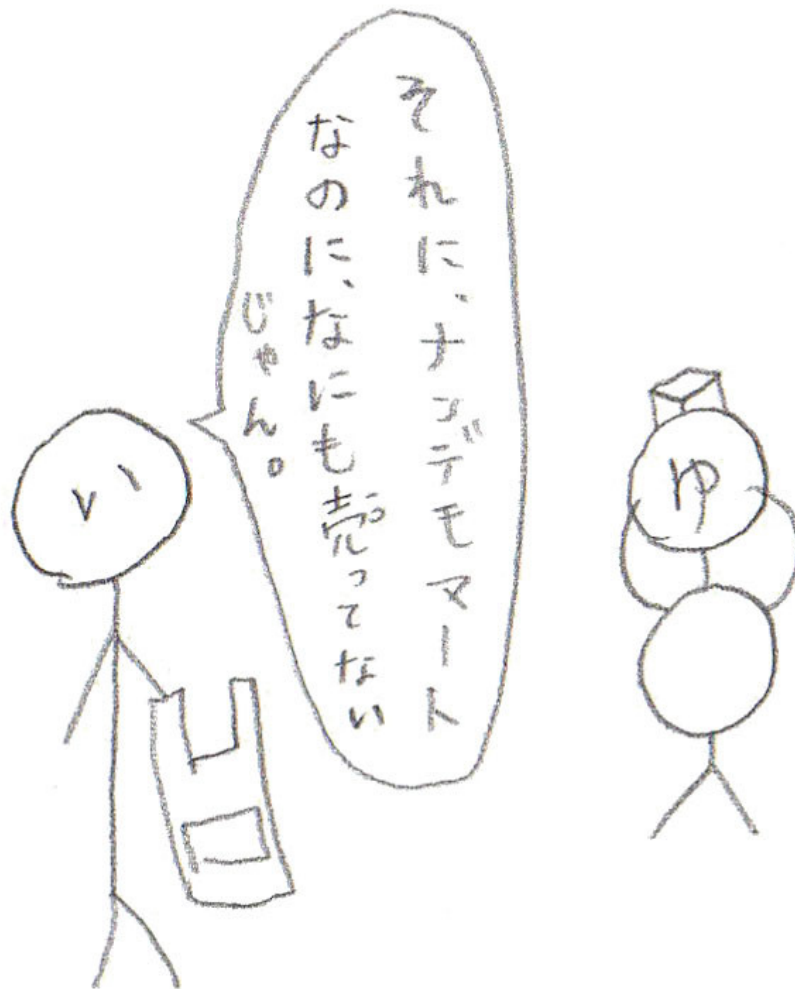 それに、ナンデモマート
なのに、なにも売ってない
じゃん。
い
ゆ